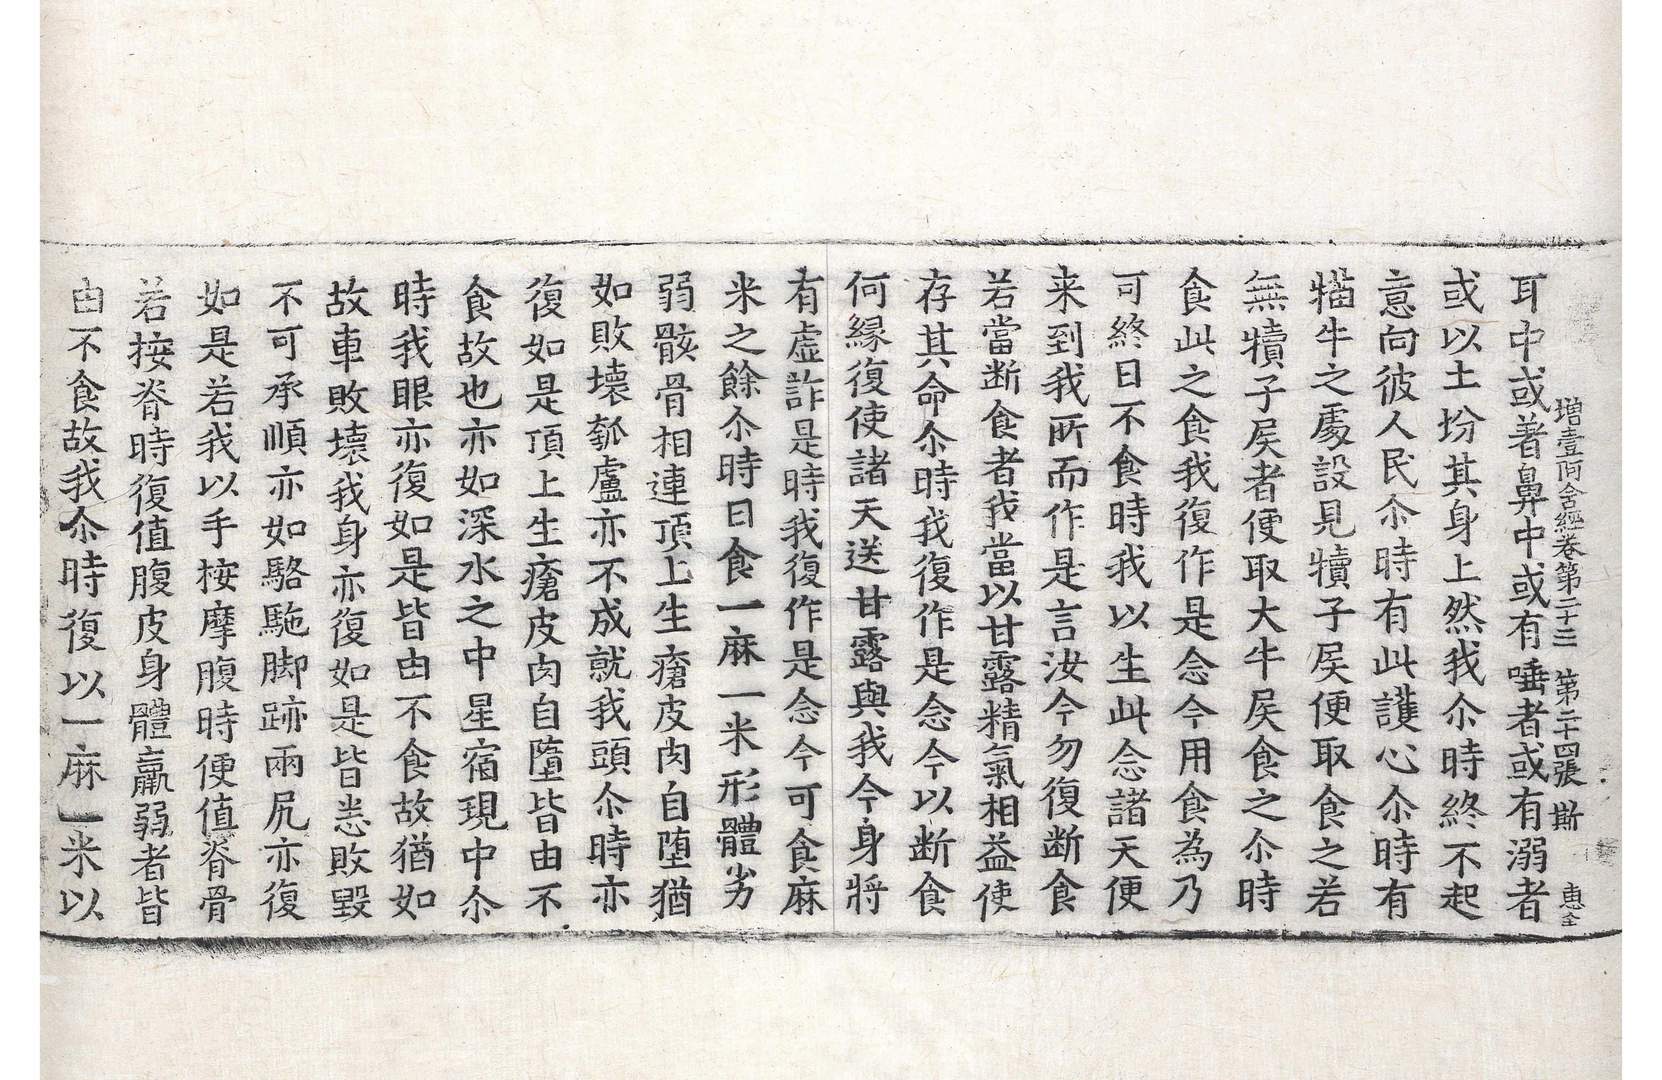 增壹阿含經卷第二十三　第二十四張　斯　惠全
耳中或著鼻中或有唾者或有溺者
或以土坋其身上然我尒時終不起
意向彼人民尒時有此護心尒時有
㹈牛之處設見犢子屎便取食之若
無犢子屎者便取大牛屎食之尒時
食此之食我復作是念今用食為乃
可終日不食時我以生此念諸天便
来到我所而作是言汝今勿復断食
若當断食者我當以甘露精氣相益使
存其命尒時我復作是念今以断食
何緣復使諸天送甘露與我今身將
有虛詐是時我復作是念今可食麻
米之餘尒時日食一麻一米形體劣
弱骸骨相連頂上生瘡皮肉自堕猶
如敗壞瓠盧亦不成就我頭尒時亦
復如是頂上生瘡皮肉自墮皆由不
食故也亦如深水之中星宿現中尒
時我眼亦復如是皆由不食故猶如
故車敗壞我身亦復如是皆悉敗毀
不可承順亦如駱駞脚跡兩尻亦復
如是若我以手按摩腹時便值脊骨
若按脊時復值腹皮身體羸弱者皆
由不食故我尒時復以一麻一米以